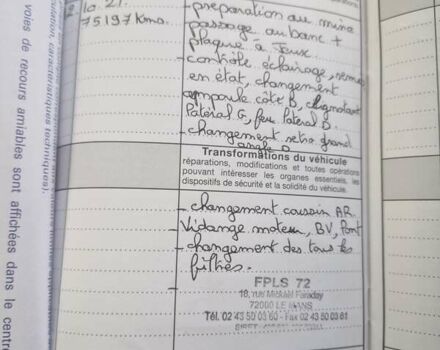 10.21.
75197 Kms.
- préparation au mine
passage au banc +
plaque à Jeux.
- contrôle éclairage, remise
en état, changement
ampoule côté D, clignotant
latéral G, feu latéral D.
- changement retro grand
angle D
Transformations du véhicule
réparations, modifications et toutes opérations
pouvant intéresser les organes essentiels, les
dispositifs de sécurité et la solidité du véhicule.
- changement coussin AR
- Vidange moteur, BV, Pont
- changement des tous les
filtres.
FPLS 72
18, rue Mickaël Faraday
72000 LE MANS
Tél. 02 43 50 03 60 - Fax 02 43 50 03 61
SIRET
voies de recours amiables sont affichées dans le centre
culation, caractéristiques techniques).